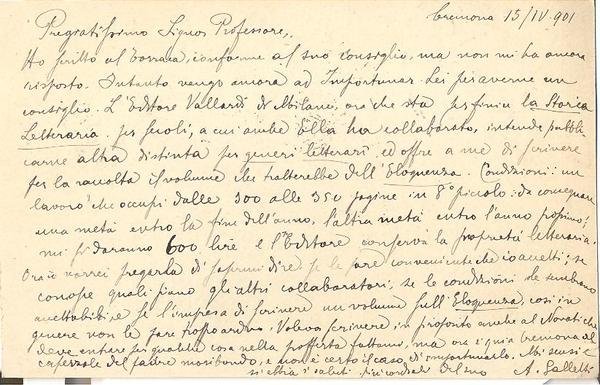 Cremona 15/IV 901
Pregiatissimo Signor Professore,
Ho scritto al Torraca, conforme al suo consiglio, ma non mi ha ancora
risposto. Intanto vengo ancora ad importunar Lei per averne un
consiglio. L'Editore Vallardi di Milano, ora che sta per finire la Storia
Letteraria per secoli, a cui anche Ella ha collaborato, intende pubbli-
carne altra distinta per generi letterari ed offre a me di scrivere
per la raccolta il volume che tratterebbe dell'Eloquenza. Condizioni: un
lavoro che occupi dalle 300 alle 350 pagine in 8° piccolo: da consegnare
una metà entro la fine dell'anno, l'altra metà entro l'anno prossimo;
mi si daranno 600 lire e l'Editore conserva la proprietà letteraria.
Ora io vorrei pregarla di sapermi dire se le pare conveniente che io accetti; se
conosce quali siano gli altri collaboratori, se le condizioni le sembrano
accettabili, e se l'impresa di scrivere un volume sull'Eloquenza, così in
genere non le pare troppo ardua. Volevo scrivere in proposito anche al Novati che
deve entrare per qualche cosa nella profferta fattami, ma ora è qui a Cremona al
capezzale del padre moribondo, e non è certo il caso di importunarlo. Mi scusi e
si abbia i saluti del suo A. Galletti